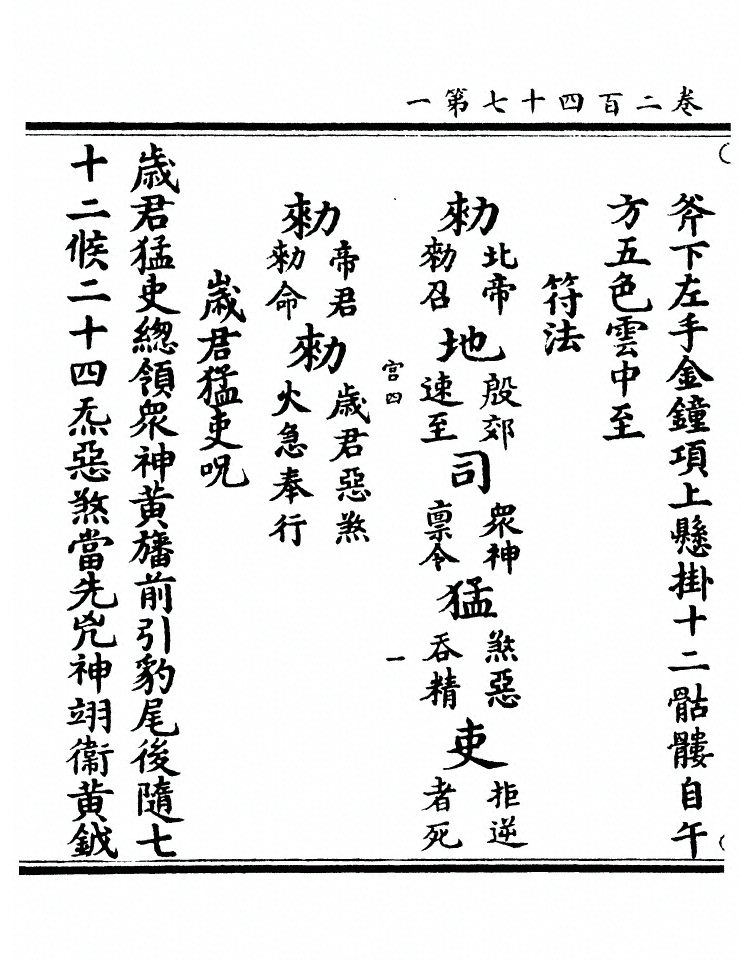 卷二百四十七第一
斧下左手金鐘項上懸掛十二骷髏自午
方五色雲中至
符法
勑北帝勑召地殷郊速至司眾神禀令猛煞惡吞精吏拒逆者死
宫四
一
勑帝君勑命勑歲君惡煞火急奉行
歲君猛吏呪
歲君猛吏總領眾神黃旛前引豹尾後隨七
十二候二十四炁惡煞當先兇神翊衛黃鉞